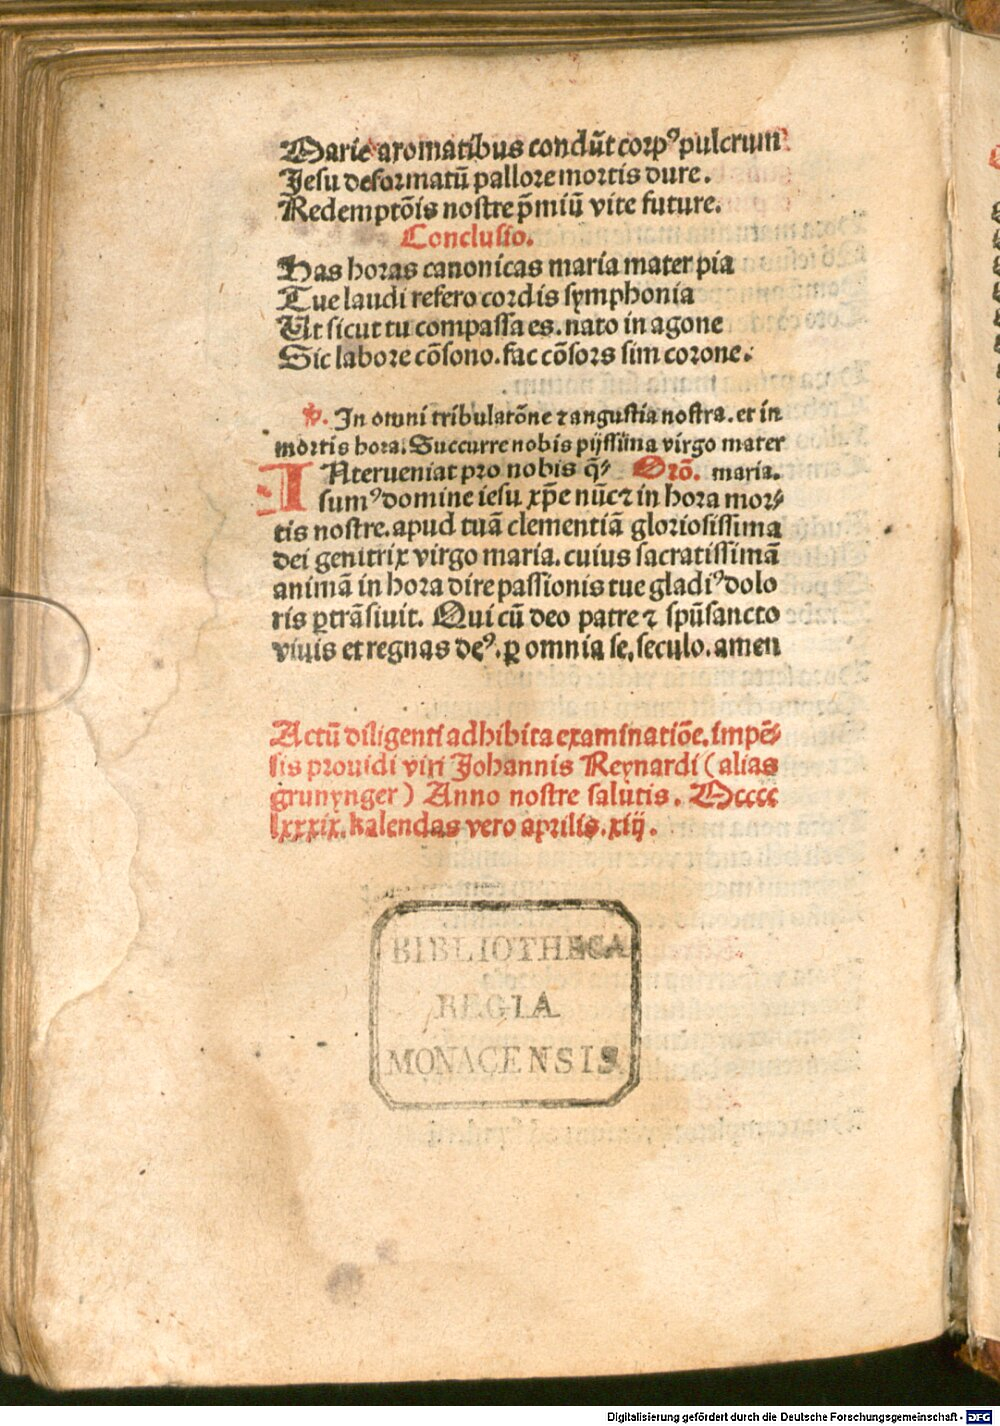 Marie aromatibus condūt corpꝰ pulcrum
Jesu deformatū pallore mortis dure.
Redemptōis nostre p̄miū vite future.
Conclusio.
Has horas canonicas maria mater pia
Tue laudi refero cordis symphonia
Ut sicut tu compassa es. nato in agone
Sic labore cōsono. fac cōsors sim corone.
℣. In omni tribulatōne ⁊ angustia nostra. et in
mortis hora. Succurre nobis pijssima virgo mater
INterueniat pro nobis q̄⸗ Orō. maria.
sumꝰ domine iesu xp̄e nūc ⁊ in hora mor⸗
tis nostre. apud tuā clementiā gloriosissima
dei genitrix virgo maria. cuius sacratissimā
animā in hora dire passionis tue gladiꝰ dolo
ris ꝑtrāsiuit. Qui cū deo patre ⁊ spūsancto
viuis et regnas deꝰ. ꝑ omnia se. seculo. amen
Actū diligenti adhibita examinatiōe. impē⸗
sis prouidi viri Johannis Reynardi (alias
grunynger) Anno nostre salutis. Mcccc
lxxxix. kalendas vero aprilis. xiij.
BIBLIOTHECA
REGIA
MONACENSIS
Digitalisierung gefördert durch die Deutsche Forschungsgemeinschaft - DFG